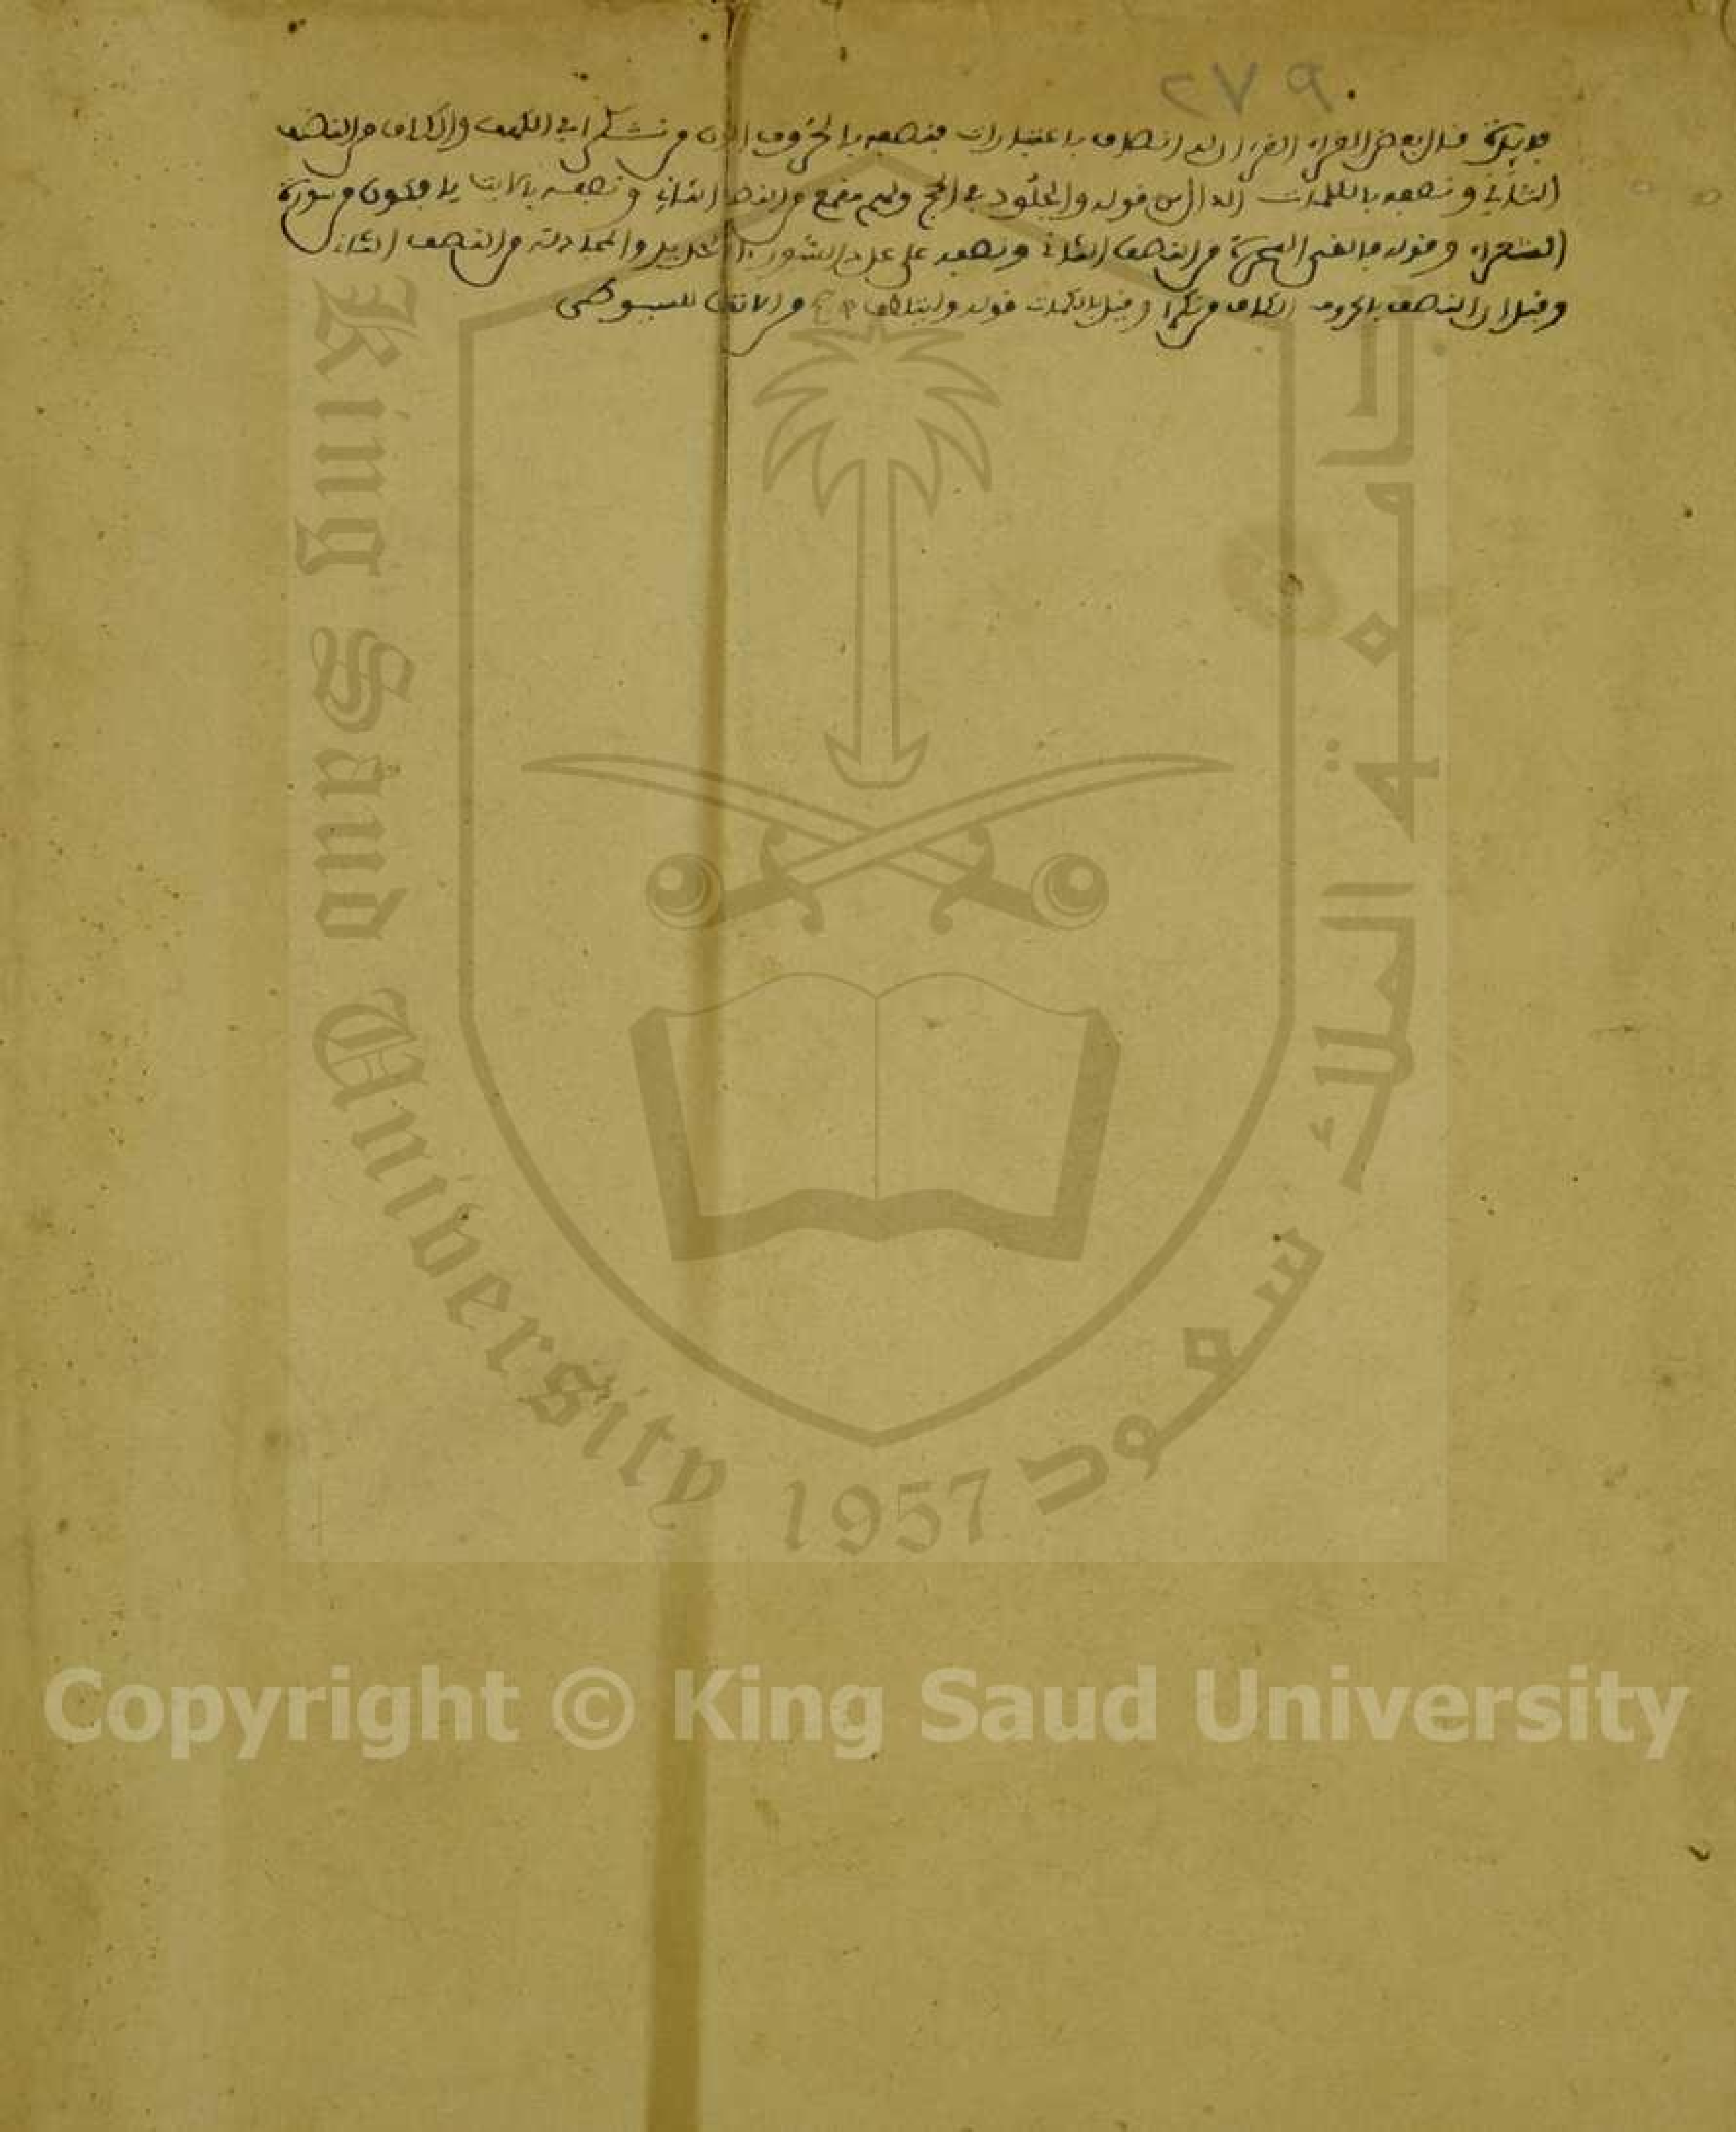 ٢٧٩
فائدة قال بعض القراء القرءان له انصاف باعتبارات فنصفه بالحروف النون من نكرا في الكهف والكاف من النصف
الثاني ونصفه بالكلمات الدال من قوله والجلود في الحج ولهم مقمع من النصف الثاني ونصفه بالايات يافكون من سورة
الشعراء وقوله فالقي السحرة من النصف الثاني ونصفه على عدد السور اخر الحديد والمجادلة من النصف الثاني
وقيل ان النصف بالحروف الكاف من نكرا وقيل بالكلمات قوله وليتلطف من الاتقان للسيوطي
King Saud University 1957
جامعة الملك سعود
Copyright © King Saud University